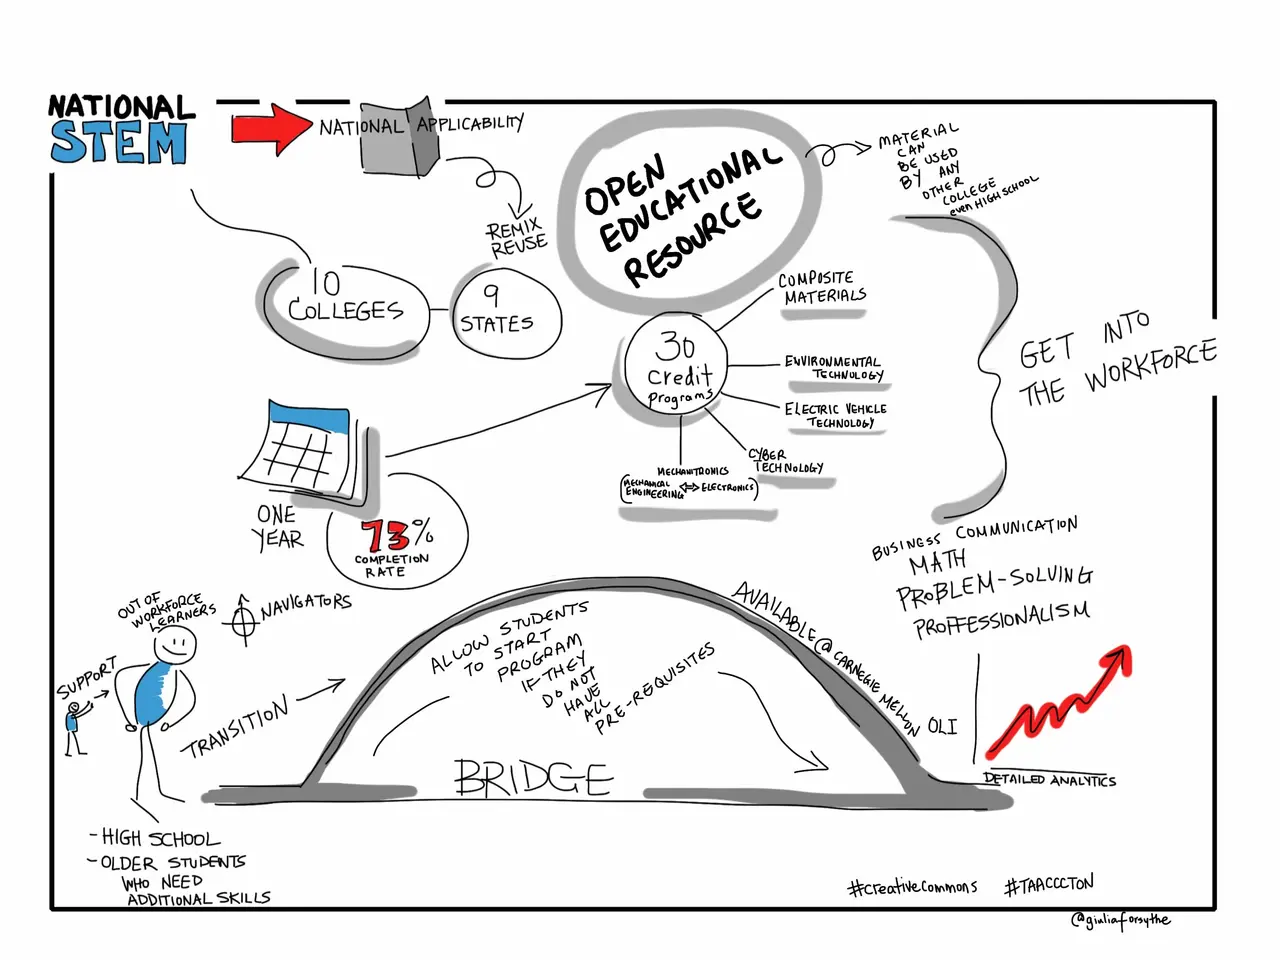 NATIONAL
STEM
NATIONAL APPLICABILITY
REMIX
REUSE
10
COLLEGES
9
STATES
OPEN
EDUCATIONAL
RESOURCE
MATERIAL
CAN
BE USED
BY ANY
OTHER
COLLEGE
even HIGH SCHOOL
30
Credit
programs
COMPOSITE
MATERIALS
ENVIRONMENTAL
TECHNOLOGY
ELECTRIC VEHICLE
TECHNOLOGY
CYBER
TECHNOLOGY
MECHANITRONICS
(MECHANICAL
ENGINEERING ⇔ ELECTRONICS)
GET INTO
THE WORKFORCE
ONE
YEAR
73%
COMPLETION
RATE
BUSINESS COMMUNICATION
MATH
PROBLEM-SOLVING
PROFFESSIONALISM
OUT OF
WORKFORCE
LEARNERS
NAVIGATORS
SUPPORT
TRANSITION
ALLOW STUDENTS
TO START
PROGRAM
IF THEY
DO NOT
HAVE
ALL
PRE-REQUISITES
AVAILABLE @ CARNEGIE MELLON
OLI
BRIDGE
DETAILED ANALYTICS
- HIGH SCHOOL
- OLDER STUDENTS
WHO NEED
ADDITIONAL SKILLS
#creativecommons #TAACCCTON
@giuliaforsythe